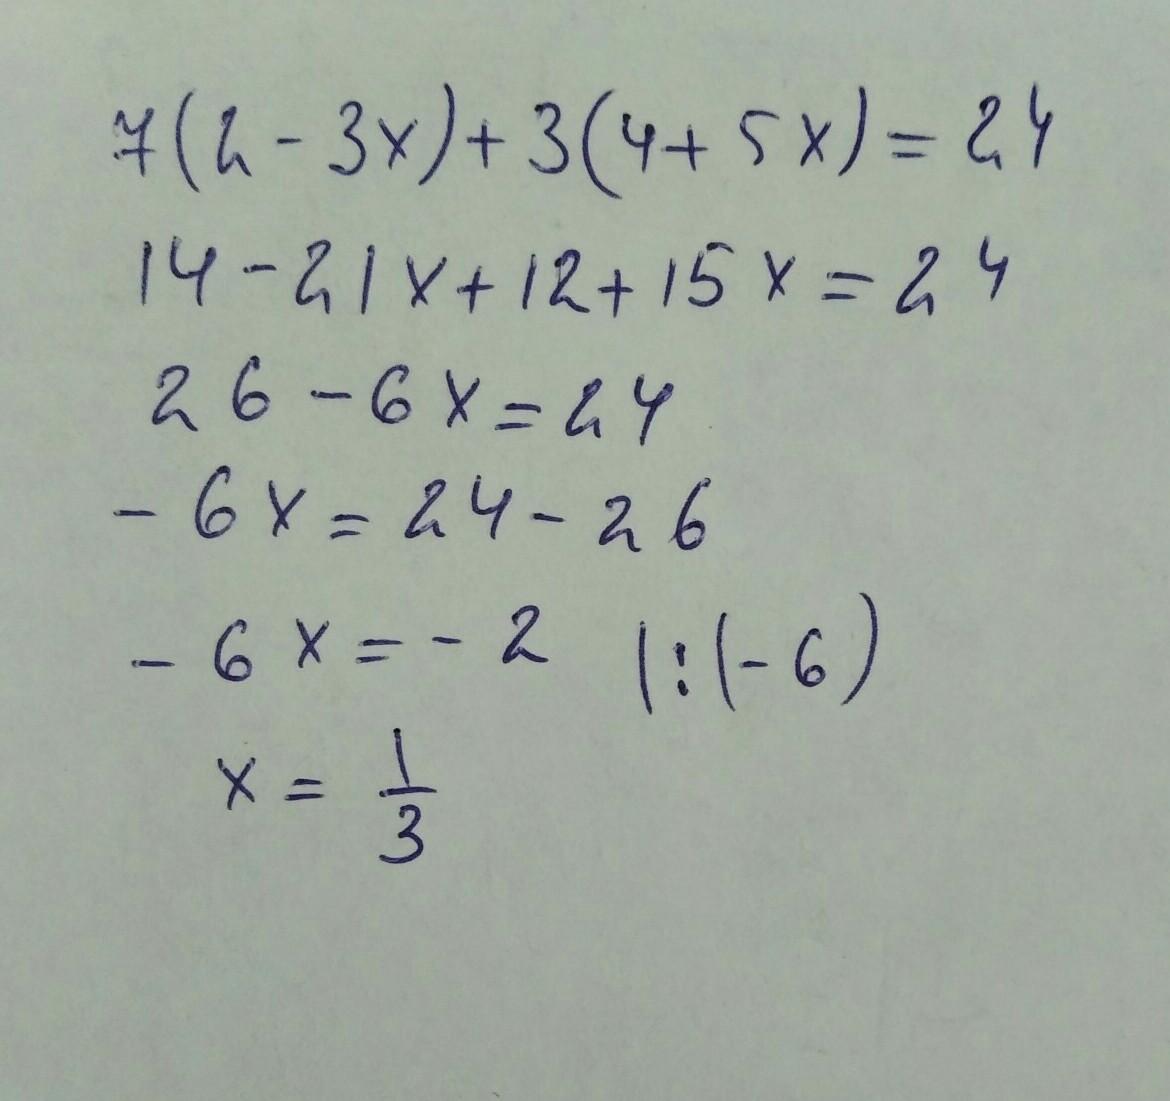 7(2-3x)+3(4+5x)=24
14-21x+12+15x=24
26-6x=24
-6x=24-26
-6x=-2 |:(-6)
x=1/3